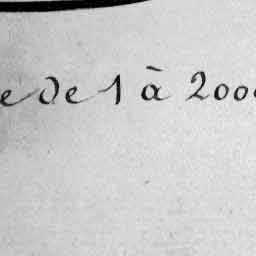 e De 1 à 2000